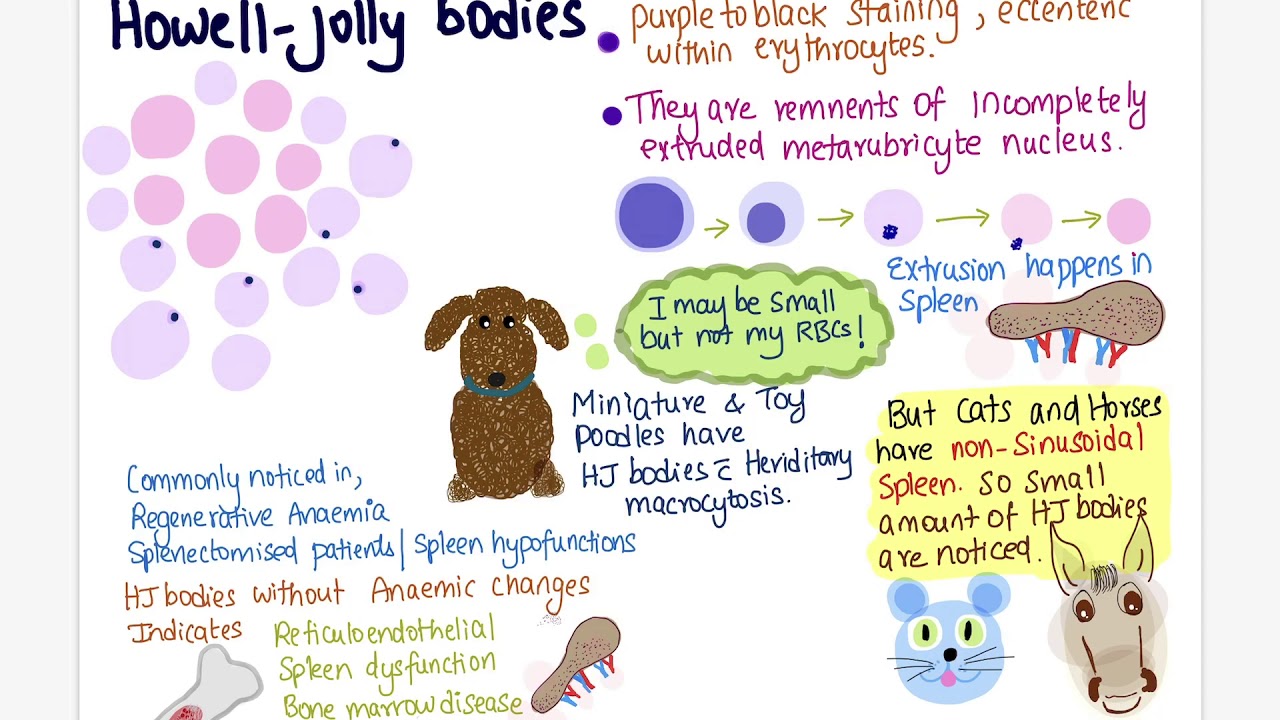 Howell-Jolly bodies
purple to black staining, eccenteric
within erythrocytes.
They are remnents of incompletely
extruded metarubricyte nucleus.
Extrusion happens in
Spleen
I may be small
but not my RBCs!
Miniature & Toy
Poodles have
HJ bodies c̄ Heriditary
macrocytosis.
But Cats and Horses
have non-Sinusoidal
Spleen. So small
amount of HJ bodies
are noticed.
Commonly noticed in,
Regenerative Anaemia
Splenectomised patients/Spleen hypofunctions
HJ bodies without Anaemic changes
Indicates
Reticuloendothelial
Spleen dysfunction
Bone marrow disease